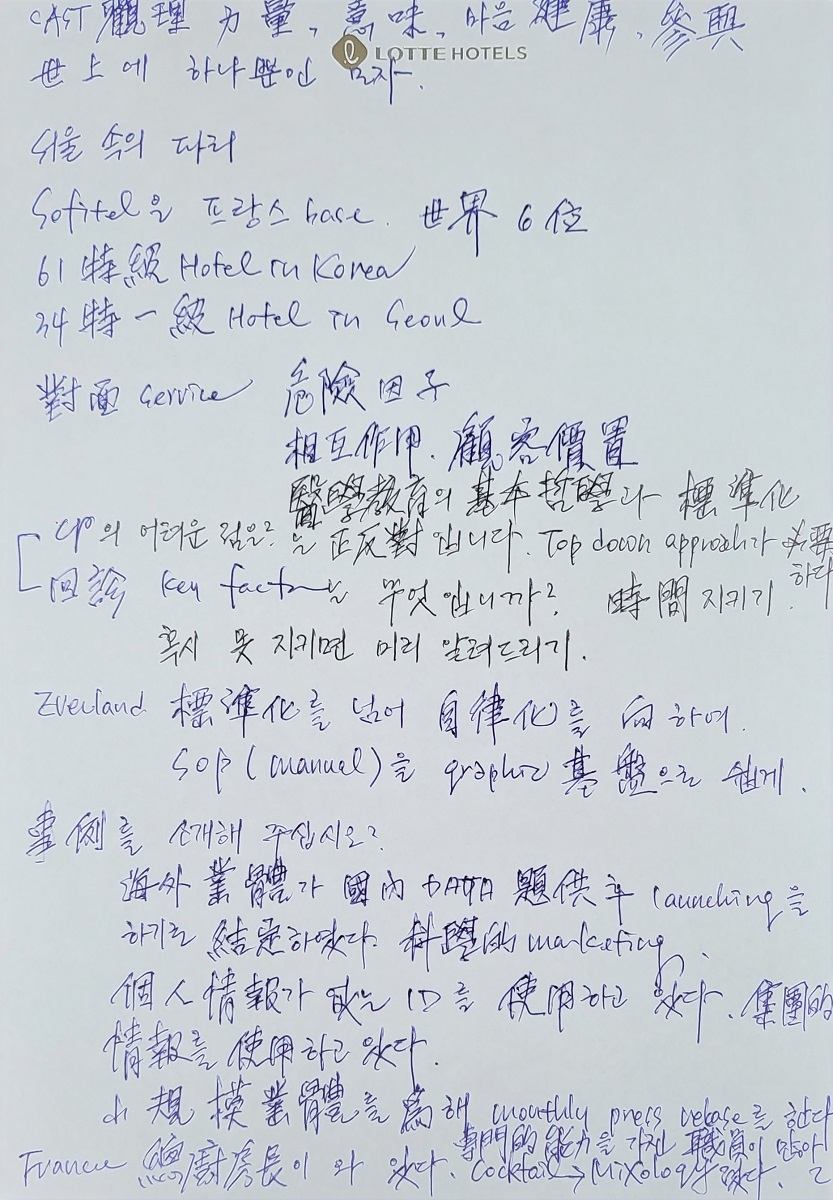 CAST 觀理 力量, 意味, 마음 健康, 參與
LOTTE HOTELS
世上에 하나뿐인 모자.
서울 속의 파리
Sofitel을 프랑스 base. 世界 6位
61 特級 Hotel in Korea
34 特一級 Hotel in Seoul
對面 Service 危險因子
相互作用. 顧客價置
醫學敎育의 基本哲學과 標準化
CP의 어려운 점은? 는 正反對입니다. Top down approach가 必要
하다
回診 key factor는 무엇입니까? 時間 지키기.
혹시 못 지키면 미리 알려드리기.
Everland 標準化를 넘어 自律化를 向하여.
SOP (manuel)을 graphic 基盤으로 쉽게.
事例를 소개해 주십시오?
海外業體가 國內 DATA 題供後 launching을
하기로 結定하였다. 科學的 marketing.
個人情報가 없는 ID를 使用하고 있다. 集團的
情報를 使用하고 있다.
小規模業體를 爲해 monthly press release를 한다
專門的 能力을 가진 職員이 많아
France 總廚房長이 와 있다. Cocktail → Mixology